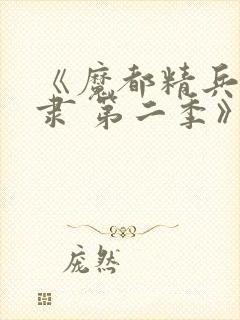 《魔都精兵
隶 第二季》
庞然